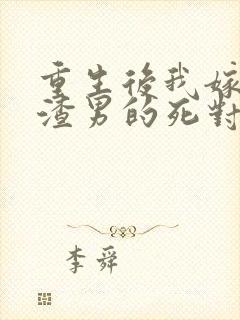 重生後我嫁
渣男的死對
李舜